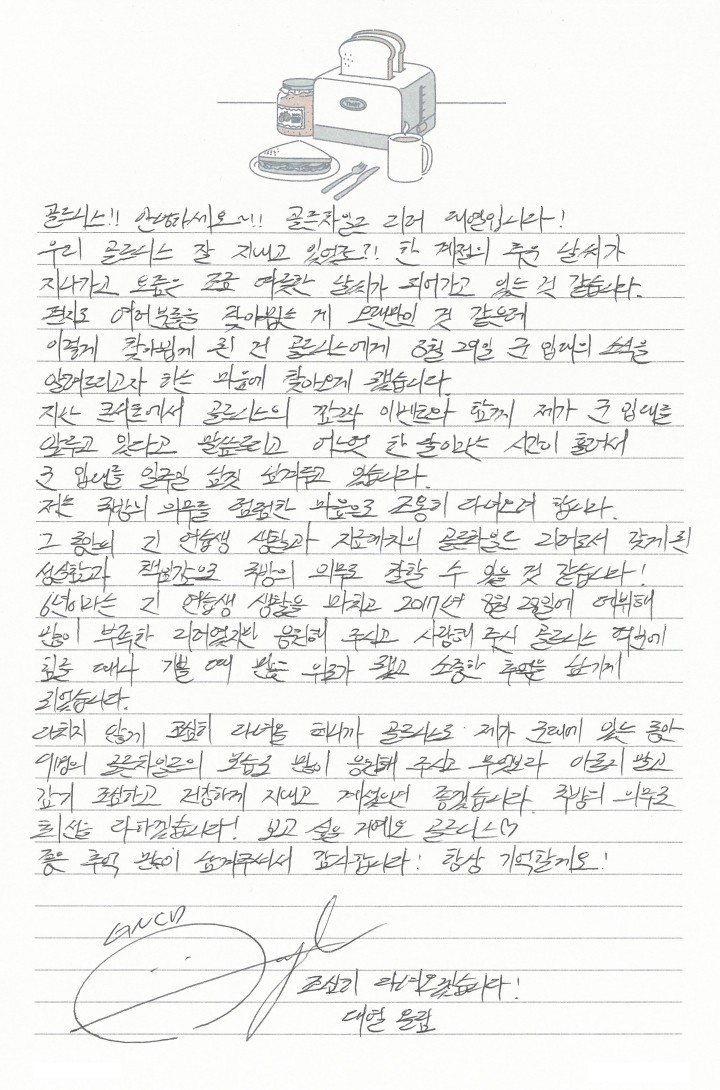 골드니스!! 안녕하세요~!! 골든차일드 리더 대열입니다~!
우리 골드니스 잘 지내고 있었죠?! 한 계절의 추운 날씨가
지나가고 요즘은 조금 따뜻한 날씨가 되어가고 있는 것 같습니다.
편지로 여러분들을 찾아뵙는 게 오랜만인 것 같은데
이렇게 찾아뵙게 된 건 골드니스에게 3월 29일 군 입대의 소식을
알려드리고자 하는 마음에 찾아오게 됐습니다.
지난 콘서트에서 골드니스의 깜짝 이벤트와 함께 제가 군 입대를
앞두고 있다고 말씀드리고 어느덧 한 달이라는 시간이 흘러서
군 입대를 일주일 남짓 남겨두고 있습니다.
저는 국방의 의무를 덤덤한 마음으로 조용히 다녀오려 합니다.
그 동안의 긴 연습생 생활과 지금까지의 골든차일드 리더로서 갖게 된
성실함과 책임감으로 국방의 의무도 잘할 수 있을 것 같습니다!
6년이라는 긴 연습생 생활을 마치고 2017년 8월 28일에 데뷔해
많이 부족한 리더였지만 응원해 주시고 사랑해 주신 골드니스 덕분에
힘들 때나 기쁠 때 많은 위로가 됐고 소중한 추억을 남기게
되었습니다.
다치지 않게 조심히 다녀올 테니까 골드니스도 제가 군대에 있는 동안
9명의 골든차일드의 모습도 많이 응원해 주시고 무엇보다 아프지 말고
감기 조심하고 건강하게 지내고 계셨으면 좋겠습니다. 국방의 의무도
최선을 다하겠습니다! 보고 싶을 거예요 골드니스♡
좋은 추억 많이 남겨주셔서 감사합니다! 항상 기억할게요!
GNCD
조심히 다녀오겠습니다!
대열 올림